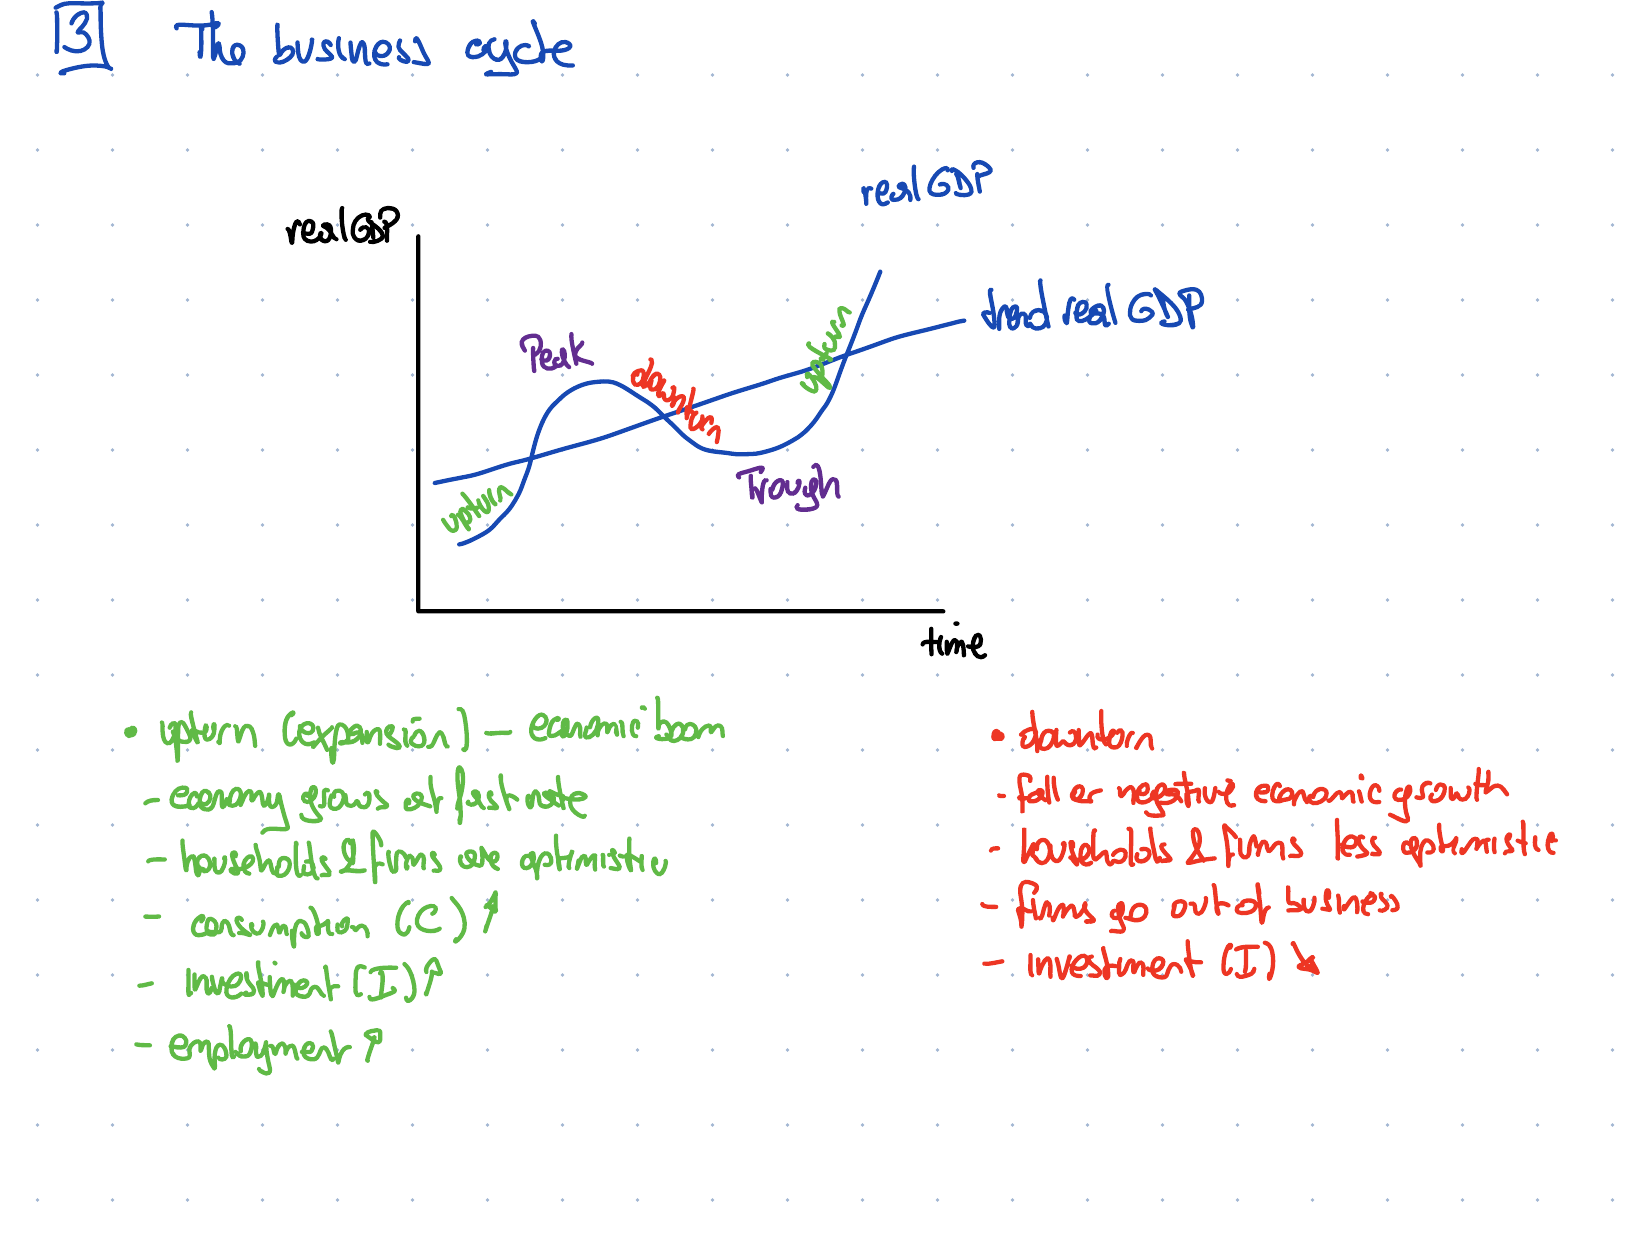 3 The business cycle
real GDP
real GDP
trend real GDP
upturn
Peak
downturn
upturn
Trough
time
• upturn (expansion) – economic boom
- economy grows at fast rate
- households & firms are optimistic
- consumption (C) ↑
- investment (I) ↑
- employment ↑
• downturn
- fall or negative economic growth
- households & firms less optimistic
- firms go out of business
- investment (I) ↘